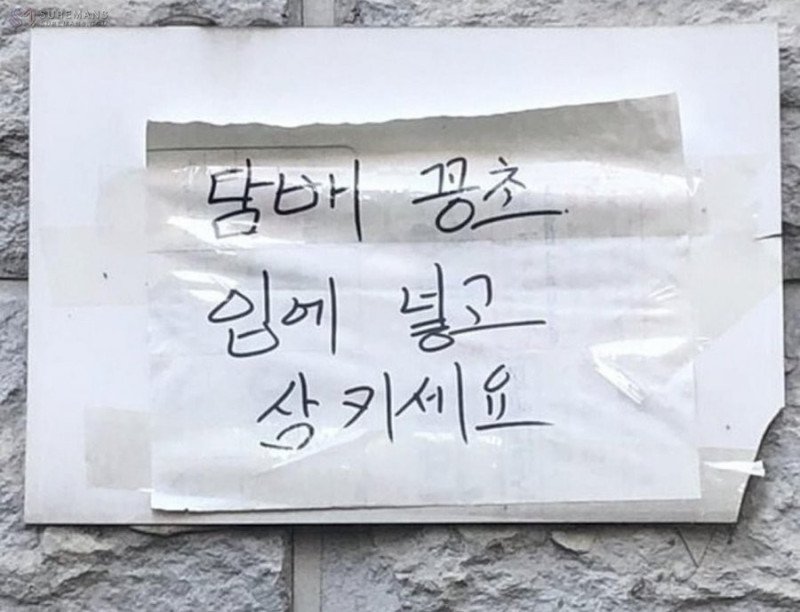 SUREMAN8
담배 꽁초
입에 넣고
삼키세요